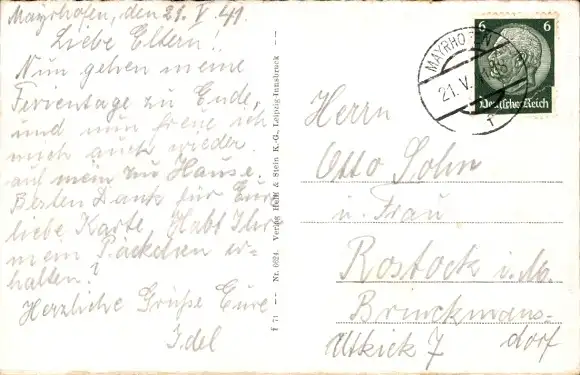 Mayrhofen, den 21. V. 41.
Liebe Eltern!
Nun gehen meine
Ferientage zu Ende,
und nun freue ich
mich auch wieder
auf mein zu Hause.
Besten Dank für Eure
liebe Karte. Habt Ihr
mein Päckchen er-
halten?
Herzliche Grüße Eure
Idel
f 71 -- Nr. 6624 Verlag Heiß & Stein K.-G., Leipzig-Innsbruck --
MAYRHOFEN
21. V.
1
6 6
Deutsches Reich
Herrn
Otto Sohn
u. Frau
Rostock i. M.
Brinckmans-
dorf
Utkiek 7